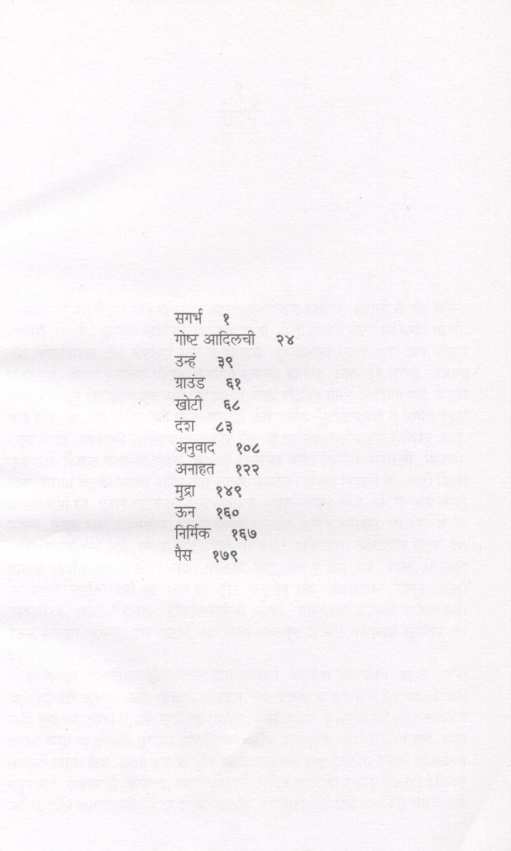 सगर्भ १
गोष्ट आदिलची २४
उन्हं ३९
ग्राउंड ६१
खोटी ६८
दंश ८३
अनुवाद १०८
अनाहत १२२
मुद्रा १४९
ऊन १६०
निर्मिक १६७
पैस १७९